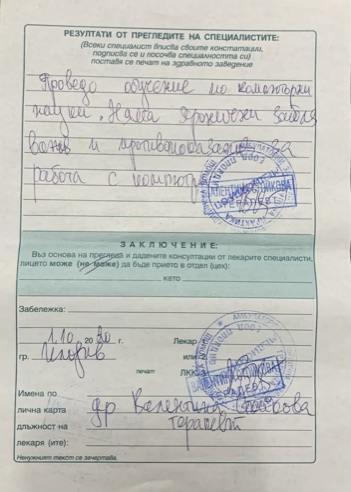 РЕЗУЛТАТИ ОТ ПРЕГЛЕДИТЕ НА СПЕЦИАЛИСТИТЕ:
(Всеки специалист вписва своите констатации,
подписва се и посочва специалността си)
поставя се печат на здравното заведение
обучение по
науки. Няма хронични забол
и противопоказания за
работа с
ВАЛЕНТИНА
ЗАКЛЮЧЕНИЕ:
Въз основа на прегледа и дадените консултации от лекарите специалисти,
лицето може (не може) да бъде прието в отдел (цех):
като
Забележка:
1.10 20 20 г. Лекар
гр. или
печат ЛКК
Имена по
лична карта др Валентина
длъжност на терапевт
лекаря (ите):
Ненужният текст се зачертава.